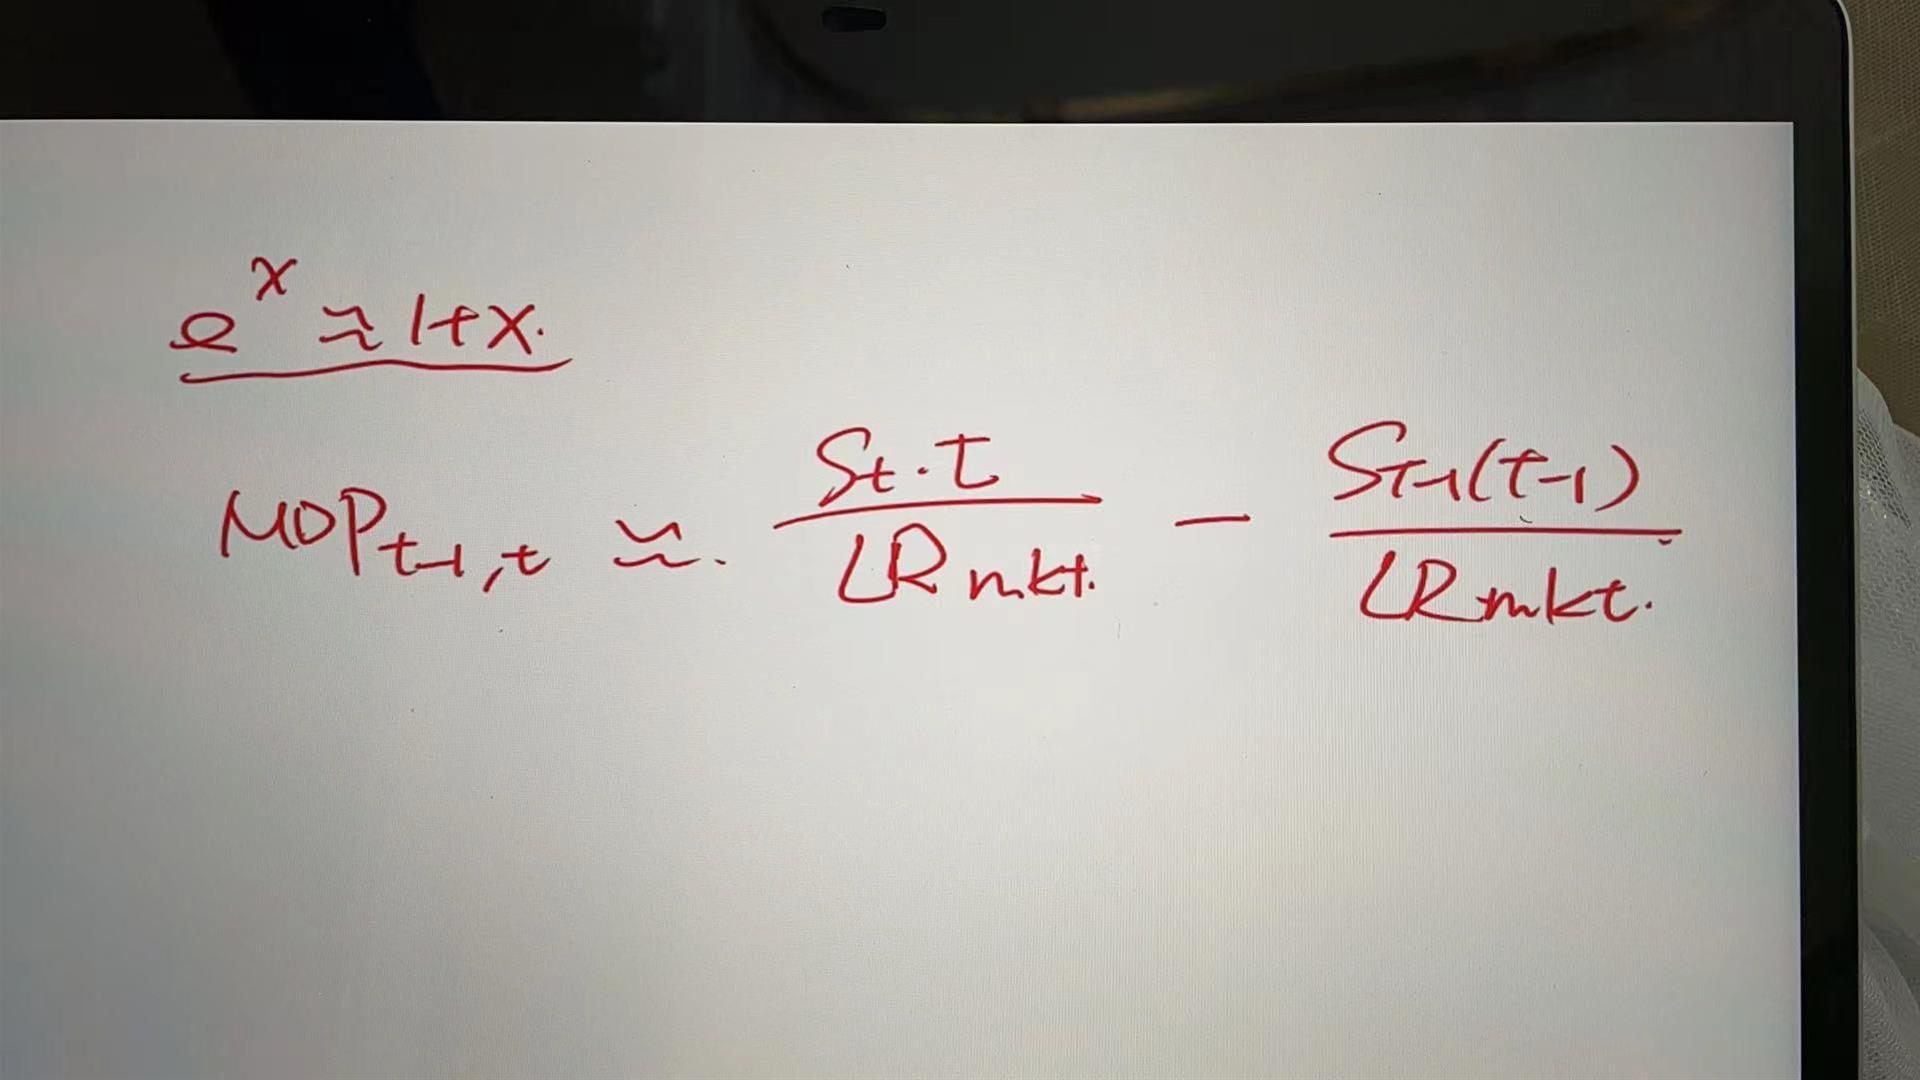 e^x ≈ 1+x.
MDP_{t-1,t} ≈. \frac{S_t·t}{LR mkt.} - \frac{S_{t-1}(t-1)}{LR mkt.}